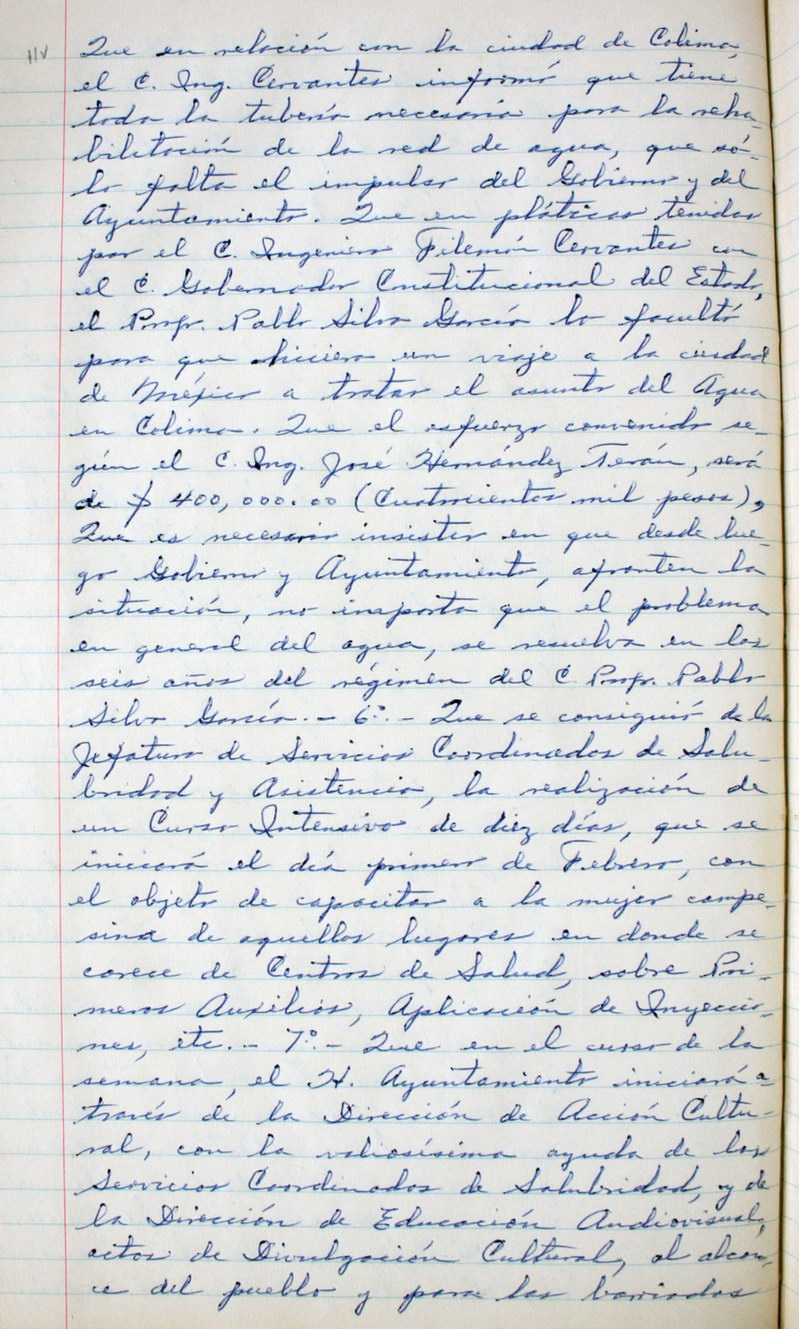 11v
Que en relación con la ciudad de Colima,
el C. Ing. Cervantes informó que tiene
toda la tubería necesaria para la reha-
bilitación de la red de agua, que só-
lo falta el impulso del Gobierno y del
Ayuntamiento. Que en pláticas tenidas
por el C. Ingeniero Filemón Cervantes con
el C. Gobernador Constitucional del Estado,
el Profr. Pablo Silva García lo facultó
para que hiciera un viaje a la ciudad
de México a tratar el asunto del Agua
en Colima. Que el esfuerzo convenido se-
gún el C. Ing. José Hernández Terán, será
de $ 400,000.00 (Cuatrocientos mil pesos),
Que es necesario insistir en que desde lue-
go Gobierno y Ayuntamiento, afronten la
situación, no importa que el problema
en general del agua, se resuelva en los
seis años del régimen del C. Profr. Pablo
Silva García.- 6º.- Que se consiguió de la
Jefatura de Servicios Coordinados de Salu-
bridad y Asistencia, la realización de
un Curso Intensivo de diez días, que se
iniciará el día primero de Febrero, con
el objeto de capacitar a la mujer campe-
sina de aquellos lugares en donde se
carece de Centros de Salud, sobre Pri-
meros Auxilios, Aplicación de Inyeccio-
nes, etc.- 7º.- Que en el curso de la
semana, el H. Ayuntamiento iniciará a
través de la Dirección de Acción Cultu-
ral, con la valiosísima ayuda de los
Servicios Coordinados de Salubridad, y de
la Dirección de Educación Audiovisual,
actos de Divulgación Cultural, al alcan-
ce del pueblo y para las barriadas